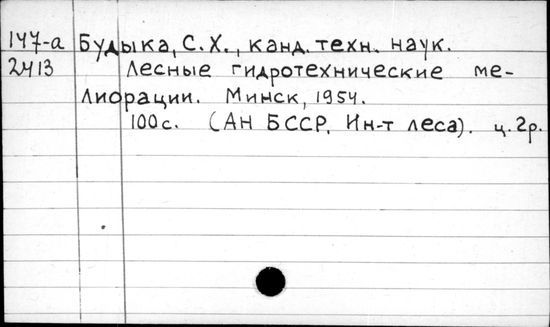 147-а Будыка, С.Х., канд. техн. наук.
2413 Лесные гидротехнические ме-
лиорации. Минск, 1954.
100с. (АН БССР, Ин-т леса). ц. 2р.